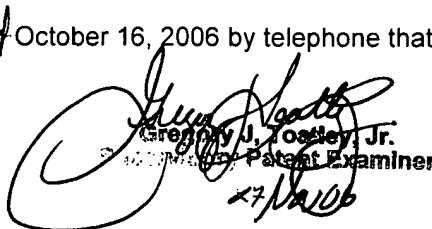 October 16, 2006 by telephone that
Gregory J. Toatley, Jr.
Patent Examiner
27 Nov 06